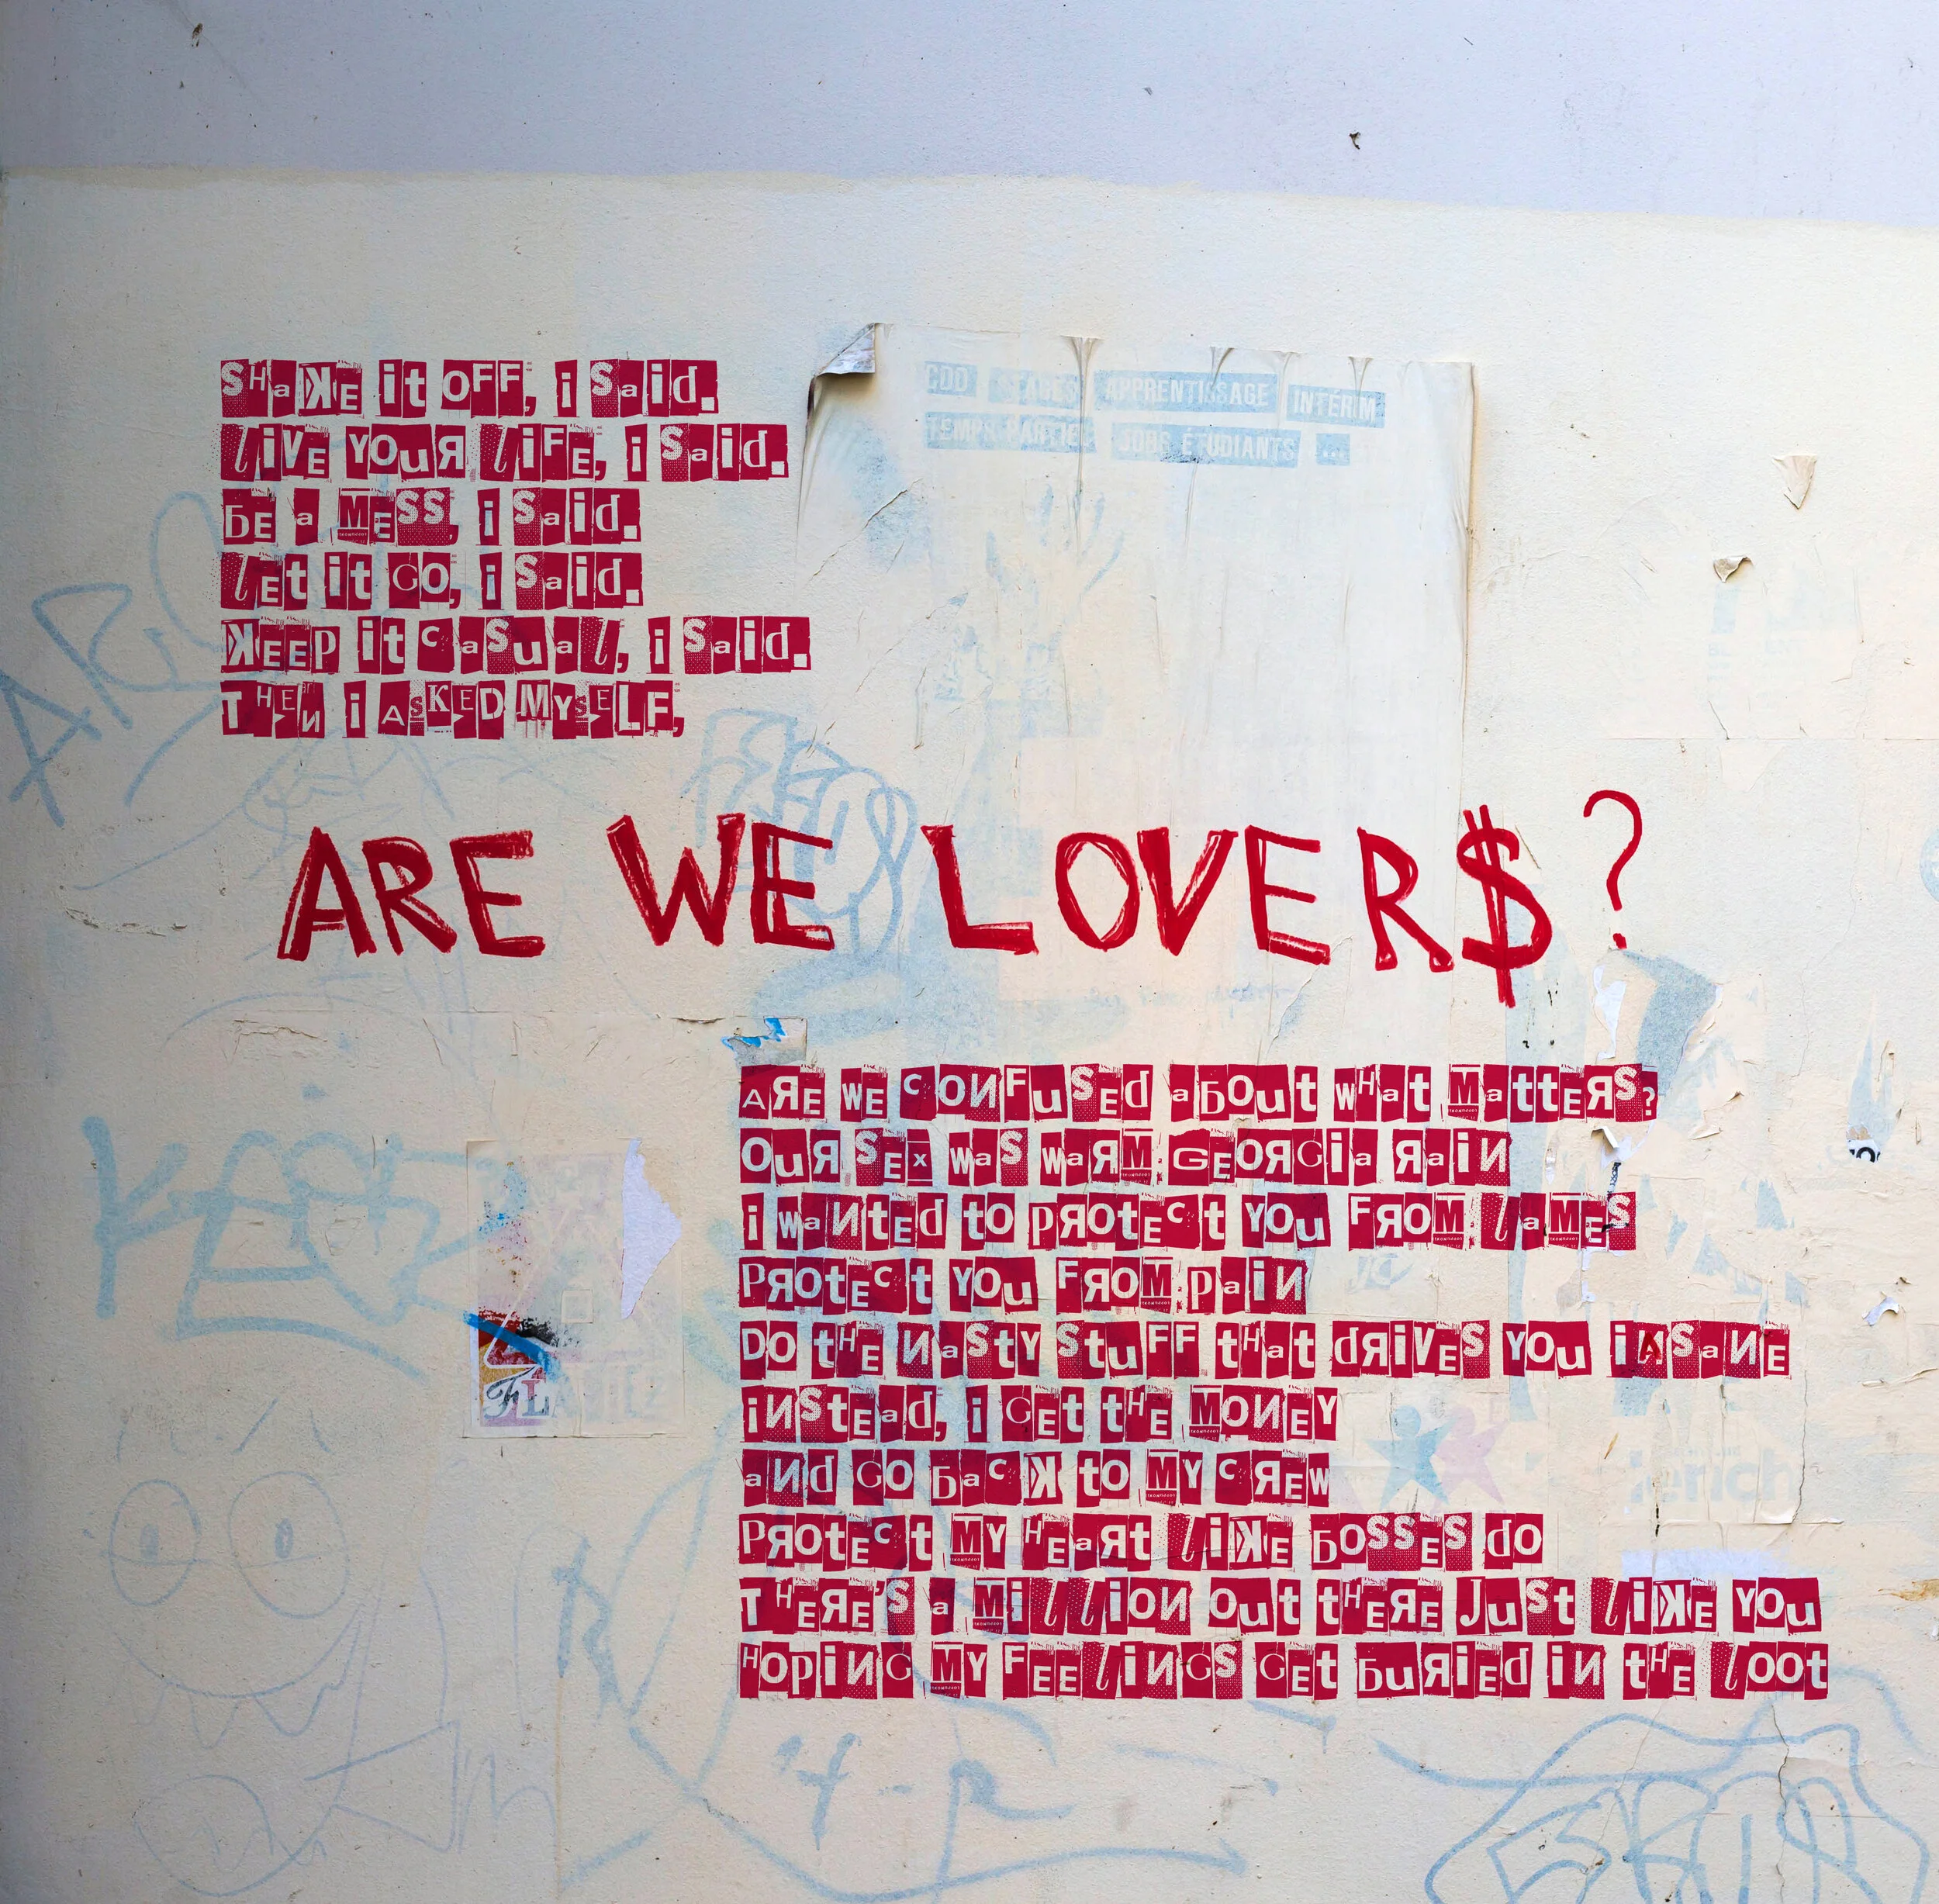 SHaKE it OFF, i Said.
LiVE YOuR LiFE, i Said.
BE a MESS, i Said.
LEt it GO, i Said.
KEEP it CaSuaL, i Said.
THEN i ASKED MYSELF,
CDD STAGES APPRENTISSAGE INTÉRIM
TEMPS PARTIEL JOBS ÉTUDIANTS ...
ARE WE LOVER$?
ARE WE CONFuSEd aBOut wHat MattERS?
OuR SEx waS waRM GEORGia RaiN
i waNtEd tO PROtECt YOu FROM LaMES
PROtECt YOu FROM PaiN
DO tHE NaStY StuFF tHat dRiVES YOu iNSaNE
iNStEad, i GEt tHE MONEY
aNd GO BaCK tO MY CREW
PROtECt MY HEaRt LiKE BOSSES dO
THERE'S a MiLLiON Out tHERE JuSt LiKE YOu
HOPiNG MY FEELiNGS GEt BuRiEd iN tHE LOOt